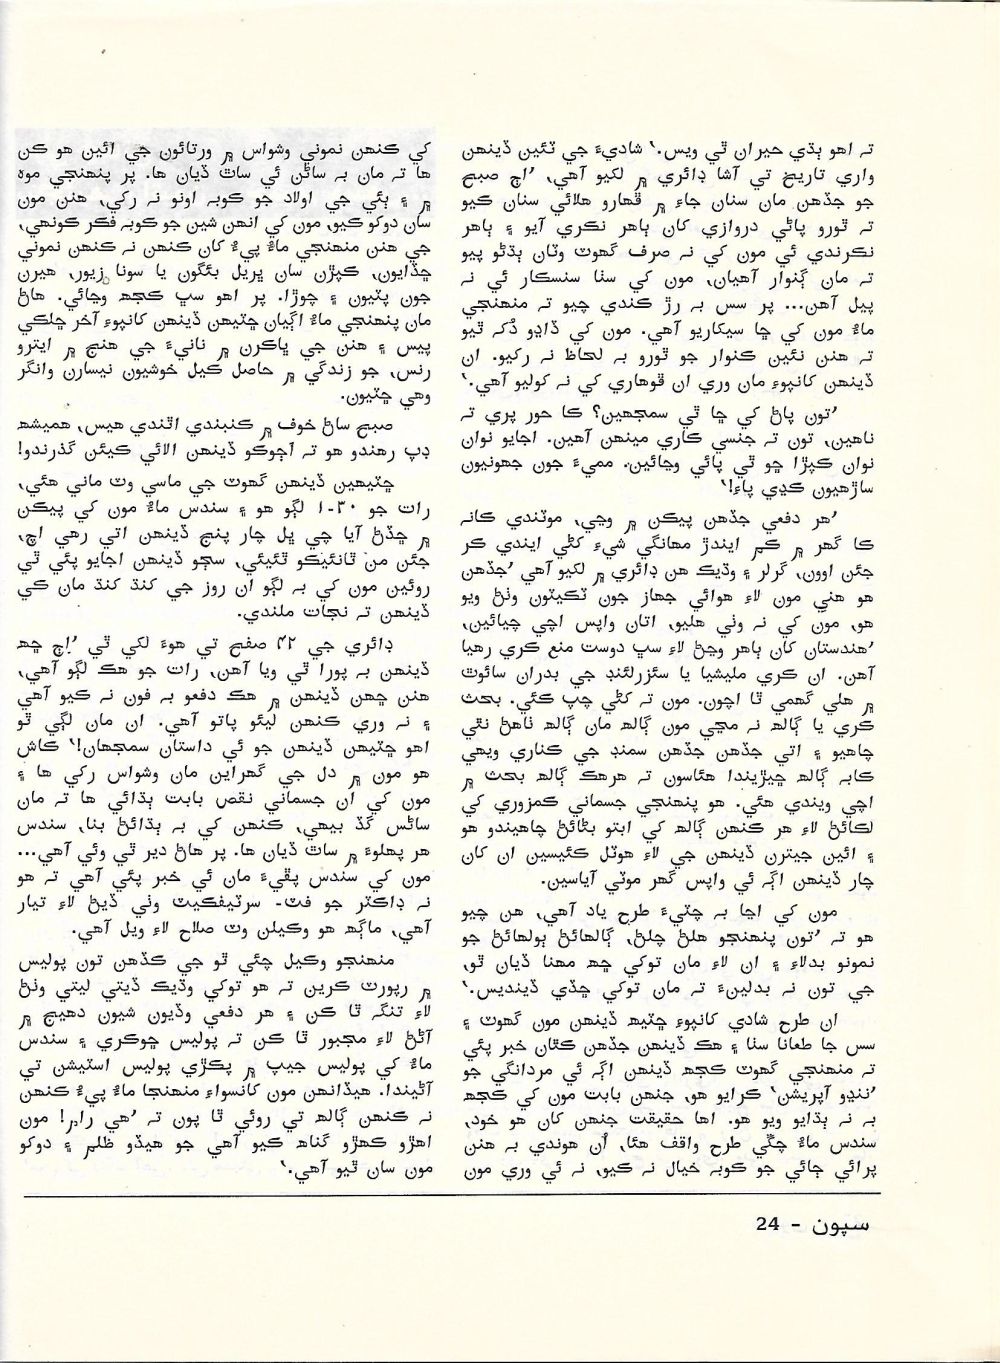 ته اهو ٻڌي حيران ٿي ويس.‘ شاديءَ جي ٽئين ڏينهن
واري تاريخ تي آشا ڊائري ۾ لکيو آهي، ’اڄ صبح
جو جڏهن مان سنان جاءِ ۾ ڦهارو هلائي سنان ڪيو
ته ٿورو پاڻي دروازي کان ٻاهر نڪري آيو ۽ ٻاهر
نڪرندي ئي مون کي نہ صرف گهوٽ وٽان ٻڌڻو پيو
ته مان ڳنوار آهيان، مون کي سٺا سنسڪار ئي نہ
پيل آهن... پر سس بہ رڙ ڪندي چيو ته منهنجي
ماءُ مون کي ڇا سيکاريو آهي. مون کي ڏاڍو دُک ٿيو
ته هنن نئين ڪنوار جو ٿورو بہ لحاظ نہ رکيو. ان
ڏينهن کانپوءِ مان وري ان ڦوهاري کي نہ کوليو آهي.‘
’تون پاڻ کي ڇا ٿي سمجهين؟ ڪا حور پري ته
ناهين، تون ته جنسي ڪاري مينهن آهين. اجايو نوان
نوان ڪپڙا ڇو ٿي پائي وڃائين. مميءَ جون جهونيون
ساڙهيون ڪڍي پاءِ!‘
’هر دفعي جڏهن پيڪن ۾ وڃي، موٽندي ڪانہ
ڪا گهر ۾ ڪم ايندڙ مهانگي شيءِ کڻي ايندي ڪر
جئن اوون، گرلر ۽ وڌيڪ هن ڊائري ۾ لکيو آهي ’جڏهن
هو هني مون لاءِ هوائي جهاز جون ٽڪيٽون وٺڻ ويو
هو، مون کي نہ وٺي هليو، اتان واپس اچي چيائين،
’هندستان کان ٻاهر وڃڻ لاءِ سڀ دوست منع ڪري رهيا
آهن. ان ڪري مليشيا يا سئزرلئنڊ جي بدران سائوٿ
۾ هلي گهمي ٿا اچون. مون ته کڻي چپ ڪئي. بحث
ڪري يا ڳالهہ نہ مڃي مون ڳالهہ مان ڳالهہ ٺاهڻ نٿي
چاهيو ۽ اتي جڏهن جڏهن سمنڊ جي ڪناري ويهي
ڪابہ ڳالهہ ڇيڙيندا هئاسون ته هرهڪ ڳالهہ بحث ۾
اچي ويندي هئي. هو پنهنجي جسماني ڪمزوري کي
لڪائڻ لاءِ هر ڪنهن ڳالهہ کي ابتو بڻائڻ چاهيندو هو
۽ ائين جيترن ڏينهن جي لاءِ هوٽل ڪئيسين ان کان
چار ڏينهن اڳہ ئي واپس گهر موٽي آياسين.
مون کي اڃا بہ چٽيءَ طرح ياد آهي، هن چيو
هو ته ’تون پنهنجو هلڻ چلڻ، ڳالهائڻ ٻولهائڻ جو
نمونو بدلاءِ ۽ ان لاءِ مان توکي ڇهہ مهنا ڏيان ٿو،
جي تون نہ بدلينءَ ته مان توکي ڇڏي ڏينديس.‘
ان طرح شادي کانپوءِ ڇٽيهہ ڏينهن مون گهوٽ ۽
سس جا طعانا سٺا ۽ هڪ ڏينهن جڏهن ڪٿان خبر پئي
ته منهنجي گهوٽ ڪجهہ ڏينهن اڳہ ئي مردانگي جو
’ننڍو آپريشن‘ ڪرايو هو، جنهن بابت مون کي ڪجهہ
بہ نہ ٻڌايو ويو هو. اها حقيقت جنهن کان هو خود،
سندس ماءُ چڱي طرح واقف هئا، اُن هوندي بہ هنن
پرائي ڄائي جو ڪوبہ خيال نہ ڪيو، نہ ئي وري مون
کي ڪنهن نموني وشواس ۾ ورتائون جي ائين هو ڪن
ها ته مان بہ ساڻن ئي ساٿ ڏيان ها. پر پنهنجي موهہ
۾ ۽ ٻئي جي اولاد جو ڪوبہ اونو نہ رکي، هنن مون
سان دوکو ڪيو، مون کي انهن شين جو ڪوبہ فڪر ڪونهي،
جي هنن منهنجي ماءُ پيءُ کان ڪنهن نہ ڪنهن نموني
ڇڏايون، ڪپڙن سان ڀريل بئگون يا سونا زيور، هيرن
جون پٽيون ۽ چوڙا. پر اهو سڀ ڪجهہ وڃائي. هاڻ
مان پنهنجي ماءُ اڳيان ڇٽيهين ڏينهن کانپوءِ آخر ڇلڪي
پيس ۽ هنن جي ڀاڪرن ۾ نانيءَ جي هنج ۾ ايترو
رنس، جو زندگي ۾ حاصل ڪيل خوشيون نيسارن وانگر
وهي ڇٽيون.
صبح ساڻ خوف ۾ ڪنبندي اٿندي هيس، هميشهہ
ڊپ رهندو هو ته اڄوڪو ڏينهن الائي ڪيئن گذرندو!
ڇٽيهين ڏينهن گهوٽ جي ماسي وٽ ماني هئي،
رات جو ۳۰-۱ لڳو هو ۽ سندس ماءُ مون کي پيڪن
۾ ڇڏڻ آيا چي ڀل چار پنج ڏينهن اتي رهي اچ،
جئن من ٿانئيڪو ٿئيئي، سڄو ڏينهن اجايو پئي ٿي
روئين مون کي بہ لڳو ان روز جي کنڌ کنڌ مان ڪي
ڏينهن ته نجات ملندي.
ڊائري جي ۴۲ صفح تي هوءَ لکي ٿي ’اڄ ڇهہ
ڏينهن بہ پورا ٿي ويا آهن، رات جو هڪ لڳو آهي،
هنن ڇهن ڏينهن ۾ هڪ دفعو بہ فون نہ ڪيو آهي
۽ نہ وري ڪنهن ليئو پاتو آهي. ان مان لڳي ٿو
اهو ڇٽيهين ڏينهن جو ئي داستان سمجهان!‘ ڪاش
هو مون ۾ دل جي گهراين مان وشواس رکي ها ۽
مون کي ان جسماني نقص بابت ٻڌائي ها ته مان
ساڻس گڏ بيهي، ڪنهن کي بہ ٻڌائڻ بنا، سندس
هر پهلوءَ ۾ ساٿ ڏيان ها. پر هاڻ دير ٿي وئي آهي...
مون کي سندس پڦيءَ مان ئي خبر پئي آهي ته هو
نہ ڊاڪٽر جو فٽ- سرٽيفڪيٽ وٺي ڏيڻ لاءِ تيار
آهي، ماڳهہ هو وڪيلن وٽ صلاح لاءِ ويل آهي.
منهنجو وڪيل چئي ٿو جي ڪڏهن تون پوليس
۾ رپورٽ ڪرين ته هو توکي وڌيڪ ڏيتي ليتي وٺڻ
لاءِ تنگہ ٿا ڪن ۽ هر دفعي وڏيون شيون دهيج ۾
آڻڻ لاءِ مجبور ٿا ڪن ته پوليس ڇوڪري ۽ سندس
ماءُ کي پوليس جيپ ۾ پڪڙي پوليس اسٽيشن تي
آڻيندا. هيڏانهن مون کانسواءِ منهنجا ماءُ پيءُ ڪنهن
نہ ڪنهن ڳالهہ تي روئي ٿا پون ته ’هي رام! مون
اهڙو ڪهڙو گناهہ ڪيو آهي جو هيڏو ظلم ۽ دوکو
مون سان ٿيو آهي.‘
سپون - 24